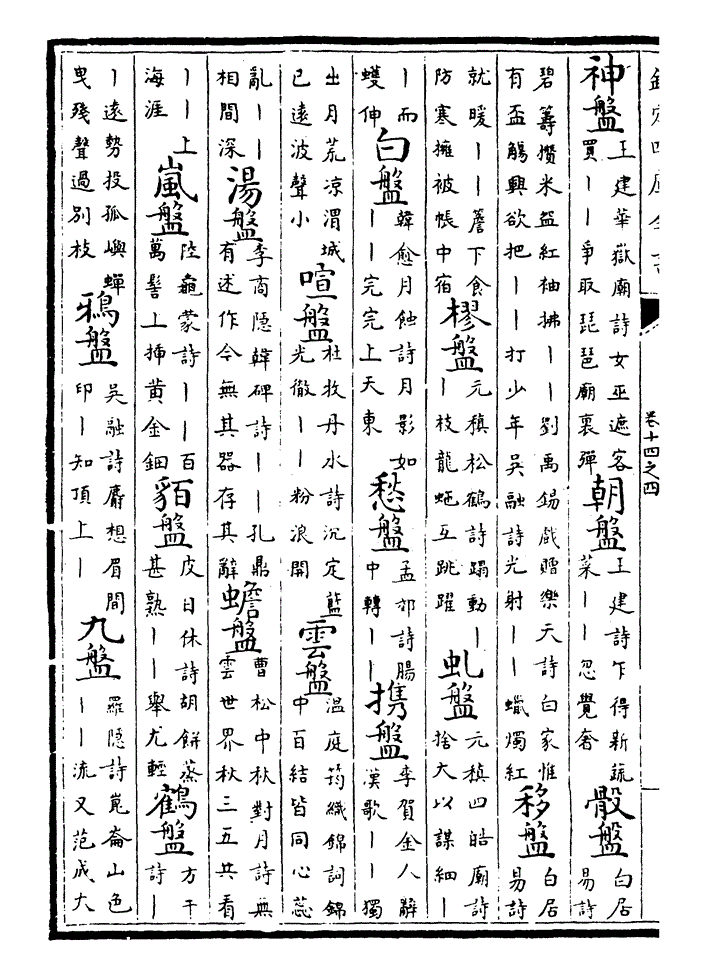 欽定四庫全書
卷十四之四
神盤王建華嶽廟詩女巫遮客買丨丨爭取琵琶廟裏彈朝盤王建詩乍得新蔬菜丨丨忽覺奢骰盤白居易詩
碧籌攢米盌紅袖拂丨丨劉禹錫戲贈樂天詩白家惟有盃觴興欲把丨丨打少年吳融詩光射丨丨蠟燭紅移盤白居易詩
就暖丨丨簷下食防寒擁被帳中宿樛盤元稹松鶴詩蹋動丨丨枝龍虵互跳躍虬盤元稹四皓廟詩捨大以謀細丨
丨而蠖伸白盤韓愈月蝕詩月影如丨丨完完上天東愁盤孟郊詩腸中轉丨丨携盤李賀金人辭漢歌丨丨獨
出月荒凉渭城已遠波聲小喧盤杜牧丹水詩沉定藍光徹丨丨粉浪開雲盤温庭筠織錦詞錦中百結皆同心蕊
亂丨丨相間深湯盤李商隱韓碑詩丨丨孔鼎有述作今無其器存其辭蟾盤曹松中秋對月詩無雲世界秋三五共看
丨丨上海涯嵐盤陸龜蒙詩丨丨百萬髻上揷黄金鈿貊盤皮日休詩胡餅蒸甚熟丨丨舉尤輕鶴盤方干詩丨
丨遠勢投孤嶼蟬曳殘聲過别枝鴉盤吳融詩麝想眉間印丨知頂上丨九盤羅隱詩崑崙山色丨丨流又范成大